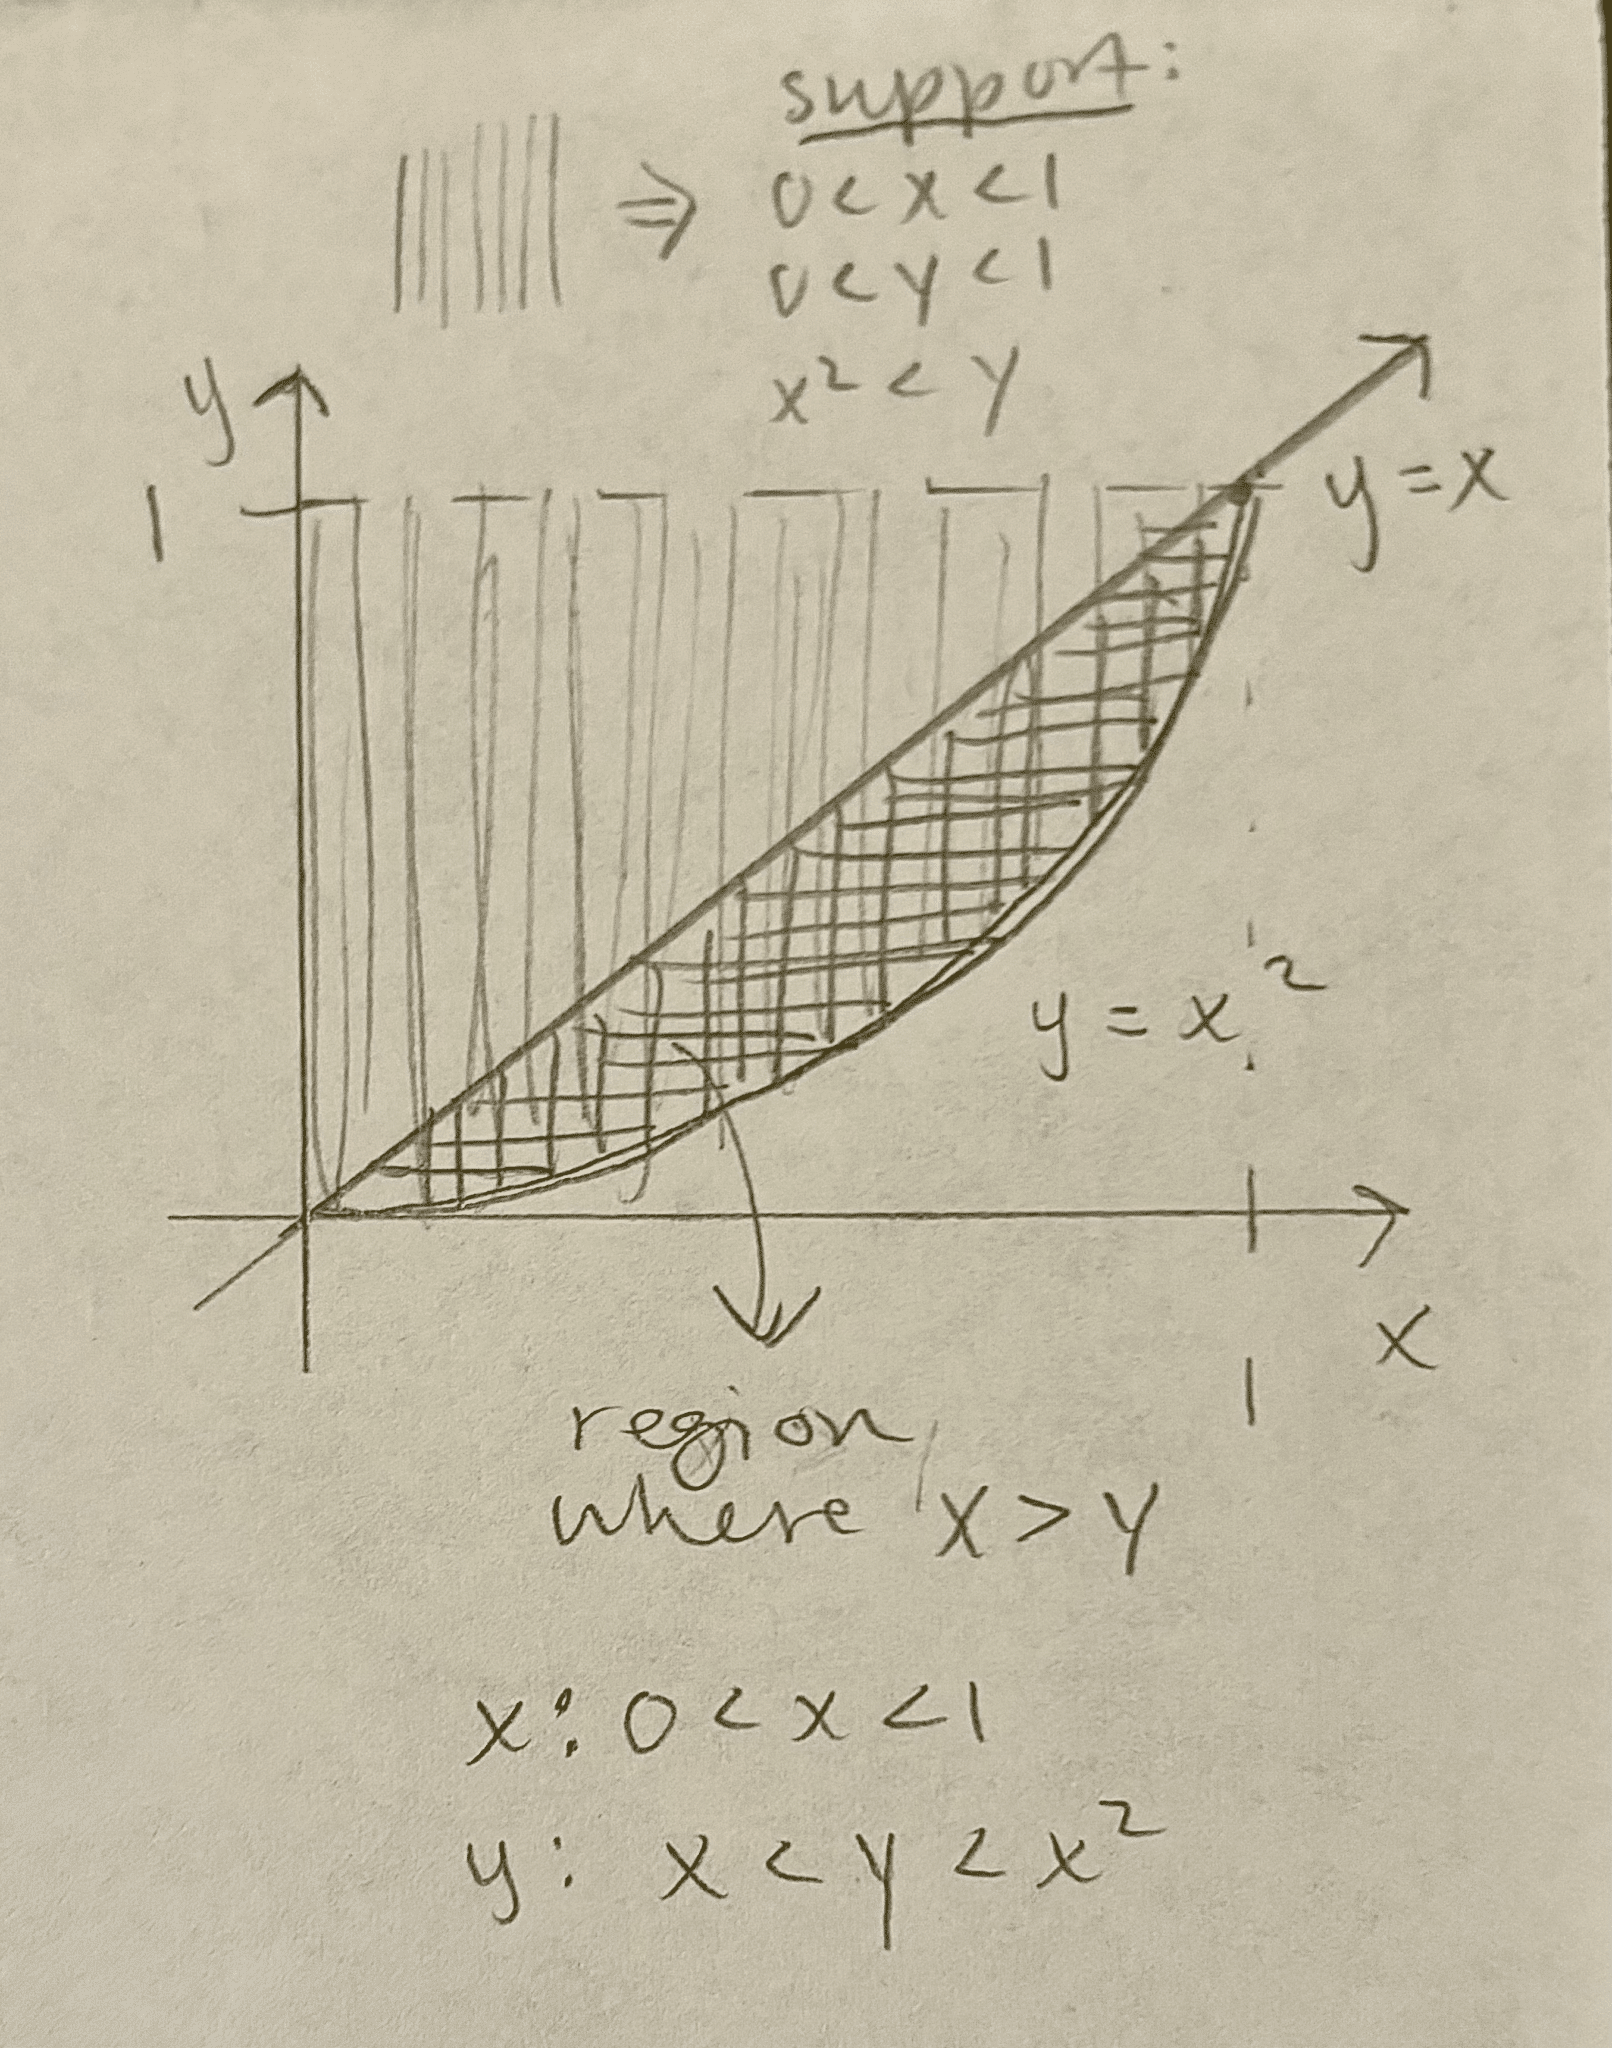 support:
⇒ 0 < x < 1
0 < y < 1
x² < y
y
1
y = x
y = x²
x
1
region
where x > y
x: 0 < x < 1
y: x < y < x²